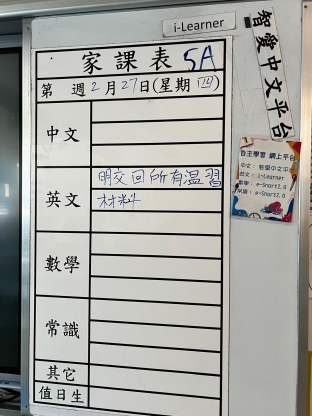 i-Learner
智愛中文平台
家課表 5A
第 週 2月27日(星期四)
中文
英文
明交回所有温習
材料
數學
常識
其它
值日生
自主學習 網上平台
中文：智愛中文平台
英文：i-Learner
數學：e-Smart2.0
常識：e-Smart2.0